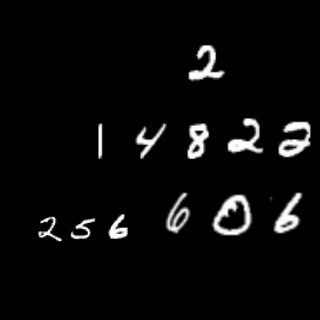 2
14822
256606